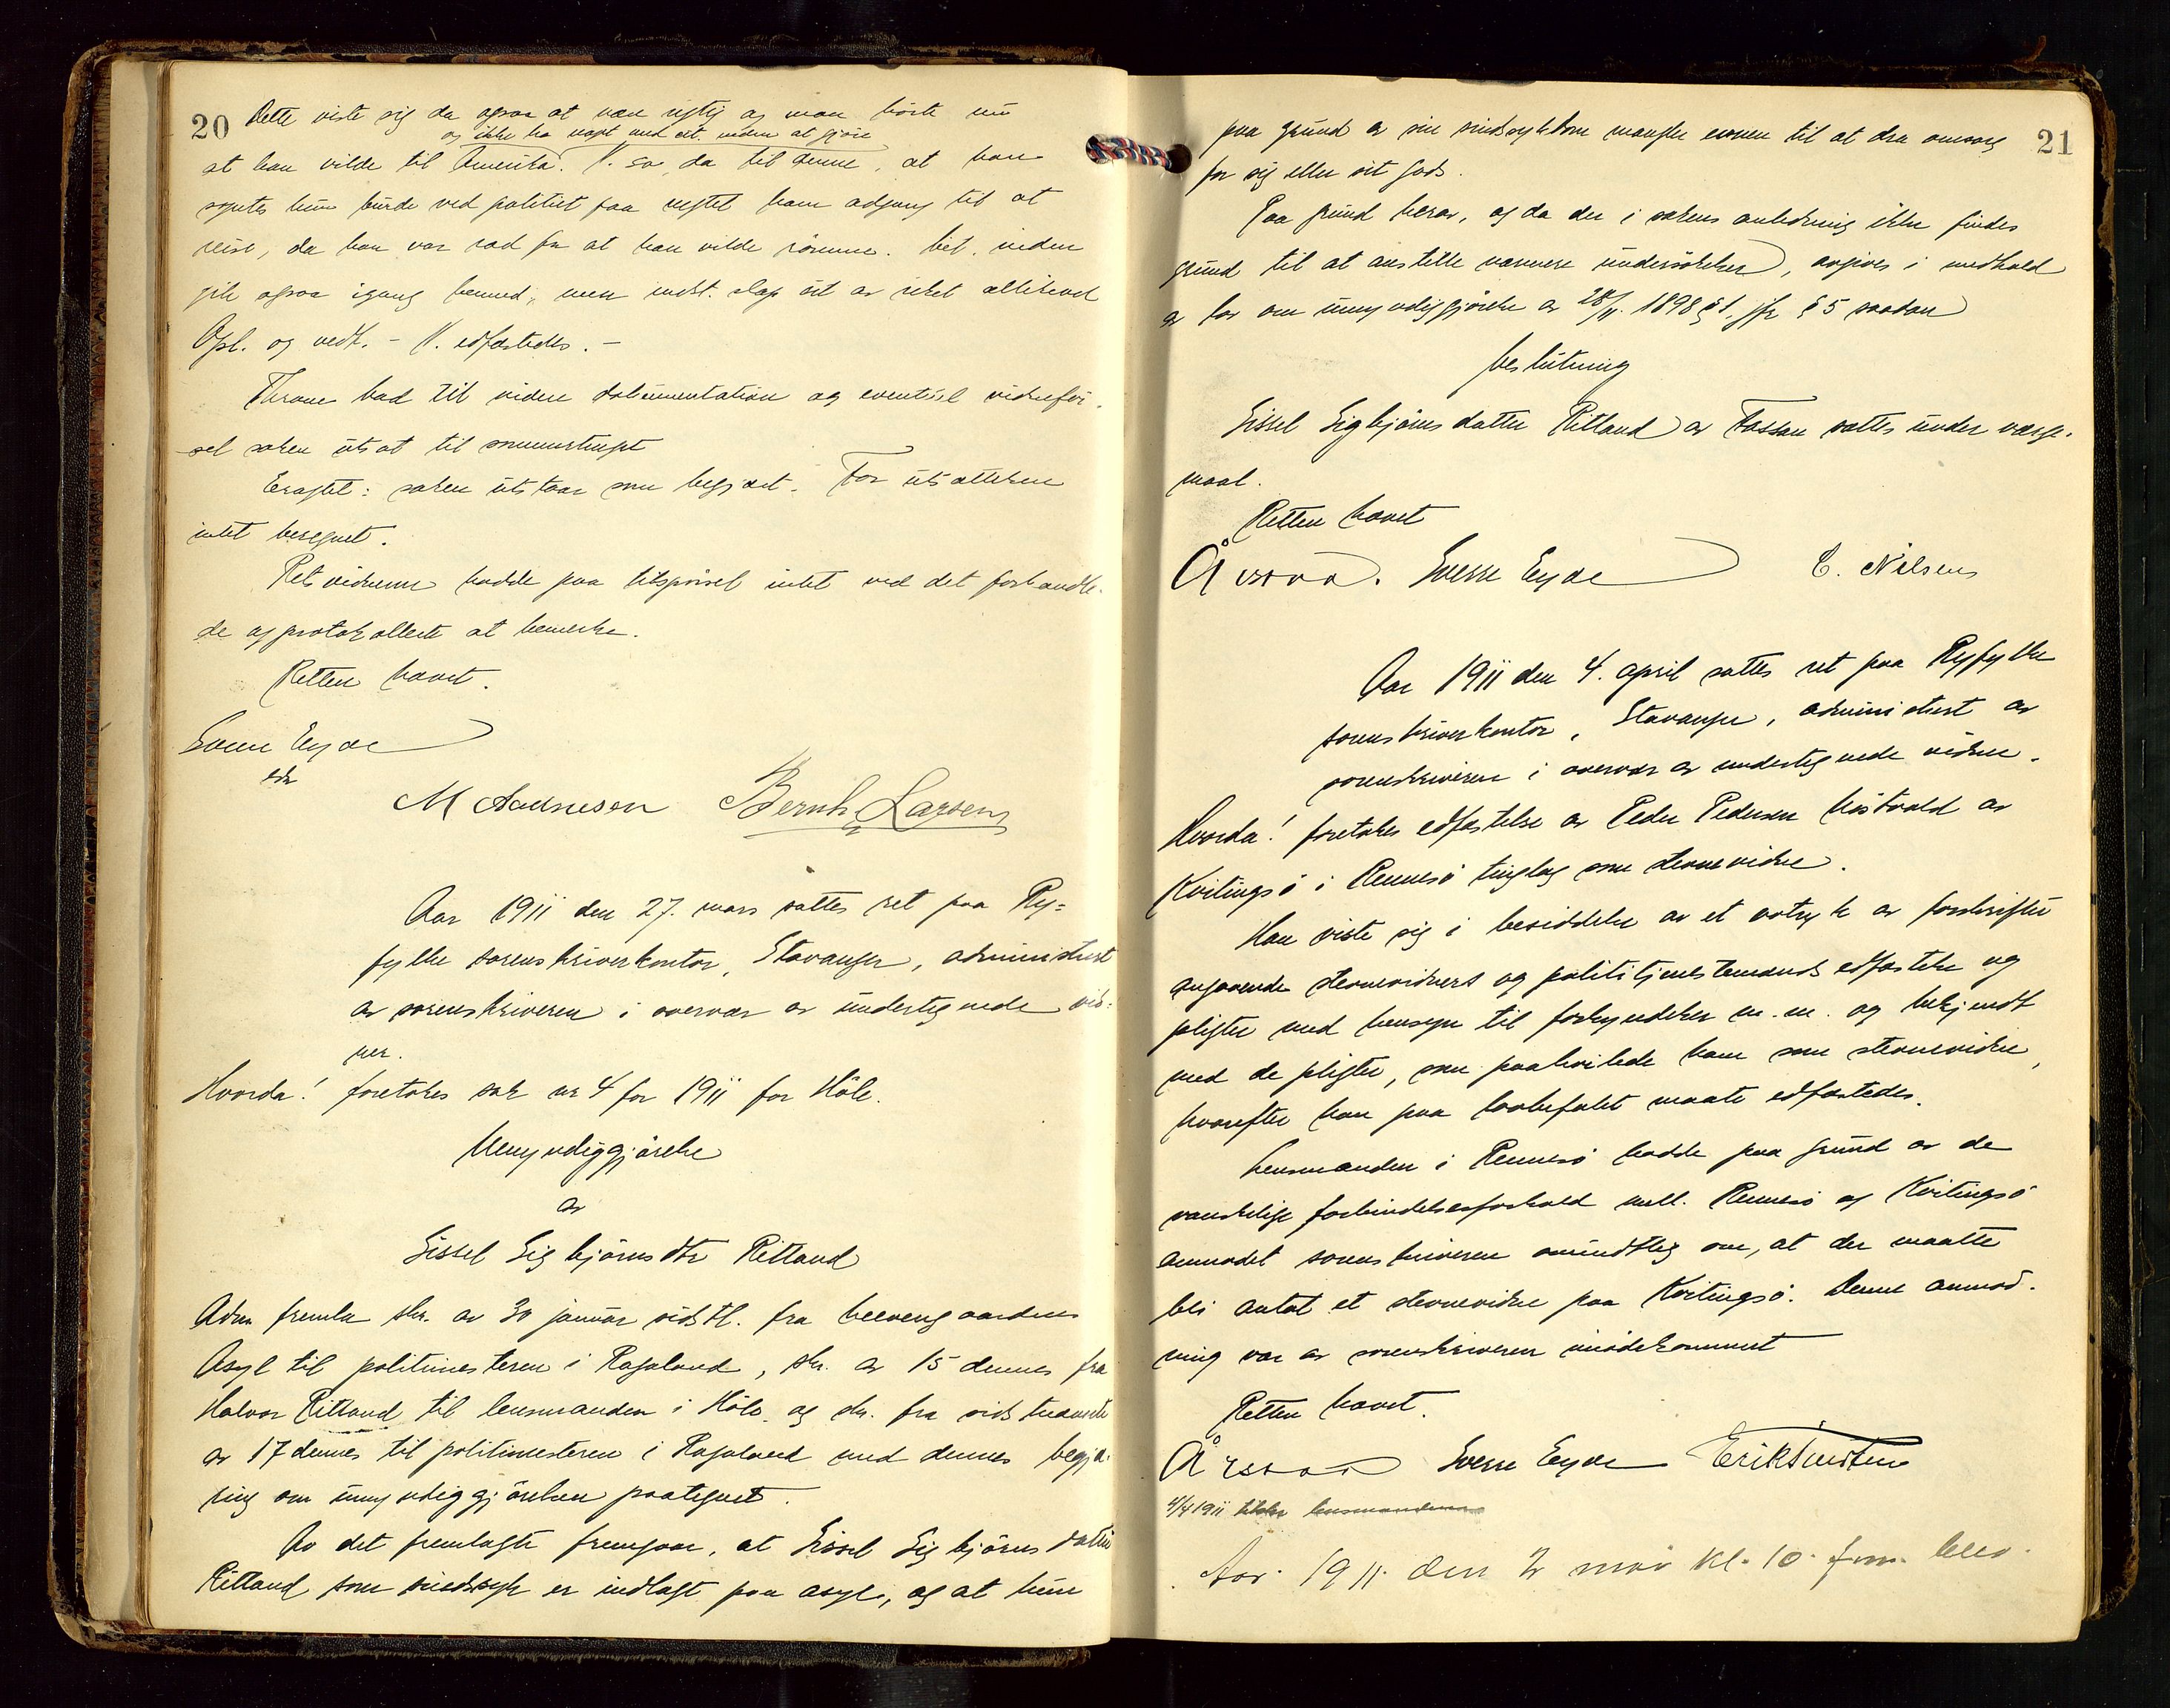 20 Dette viste sig da ogsaa at være rigtig og man hørte nu
og ikke ha nogt med at. uden at gjøre
at han vilde til Amerika. V. sa da til denne, at han
syntes hun burde ved politiet faa negtet ham adgang til at
reise, da han var ræd for at han vilde rømme.
gik ogsaa igang hermed, men slap ut av riket allikevel
Opl. og vedt. - V. edfæstedes. -
Throne bad til videre dokumentation og eventuel vidnefør-
sel saken utsat til sommertinget
Eragtet: saken utstaar som begjært. For utsættelsen
intet beregnet.
Retsvidnerne hadde paa tilspørsel intet ved det forhandle-
de og protokollerte at bemerke.
Retten hævet.
Sverre Eyde
edsv
M Aadnesen Bernh. Larsen
Aar 1911 den 27. mars sattes ret paa Ry-
fylke sorenskriverkontor, Stavanger, administrert
av sorenskriveren i overvær av undertegnede vid-
ner.
Hvorda! foretokes sak nr 4 for 1911 for Høle.
Umyndiggjørelse
av
Sissel Sigbjørnsdtr Ritland
Adm fremla skr. av 30 januar sidstl. fra
Asyl til politimesteren i Rogaland, skr. av 15 dennes fra
Halvor Ritland til lensmanden i Høle og skr. fra sidstnævnte
av 17 dennes til politimesteren i Rogaland med dennes begjæ-
ring om umyndiggjørelsen paategnet.
Av det fremlagte fremgaar, at Sissel Sigbjørnsdatter
Ritland som sindssyk er indlagt paa asyl, og at hun
21
paa grund av sin sindssykdom mangler evnen til at dra omsorg
for sig eller sit gods.
Paa grund herav, og da der i sakens anledning ikke findes
grund til at anstille nærmere undersøkelser, avgives i medhold
av lov om umyndiggjørelse av 28/11 1898 § 1, jfr § 5 saadan
beslutning
Sissel Sigbjørnsdatter Ritland av Fossan sættes under verge-
maal.
Retten hævet
Årstad. Sverre Eyde E. Nilsen
Aar 1911 den 4. april sattes ret paa Ryfylke
sorenskriverkontor, Stavanger, administrert av
sorenskriveren i overvær av undertegnede vidner.
Hvorda! foretokes edfæstelse av Peder Pedersen av
Kvitingsø i Rennesø tinglag som stevnevidne.
Han viste sig i besiddelse av et avtryk av forskrifter
angaaende stevnevidners og polititjenestemænds edfæstelse og
pligter med hensyn til forkyndelser m.m. og bekjendt
med de pligter, som paahvilede ham som stevnevidne,
hvorefter han paa lovbefalet maate edfæstedes.
Lensmanden i Rennesø hadde paa grund av de
vanskelige forbindelsesforhold mell. Rennesø og Kvitingsø
anmodet sorenskriveren mundtlig om, at der maatte
bli antat et stevnevidne paa Kvitingsø. Denne anmod-
ning var av sorenskriveren imøtekommet
Retten hævet.
Årstad Sverre Eyde
4/4 1911 tilskr lensmanden
Aar 1911 den 2 mai kl. 10 fm. blev